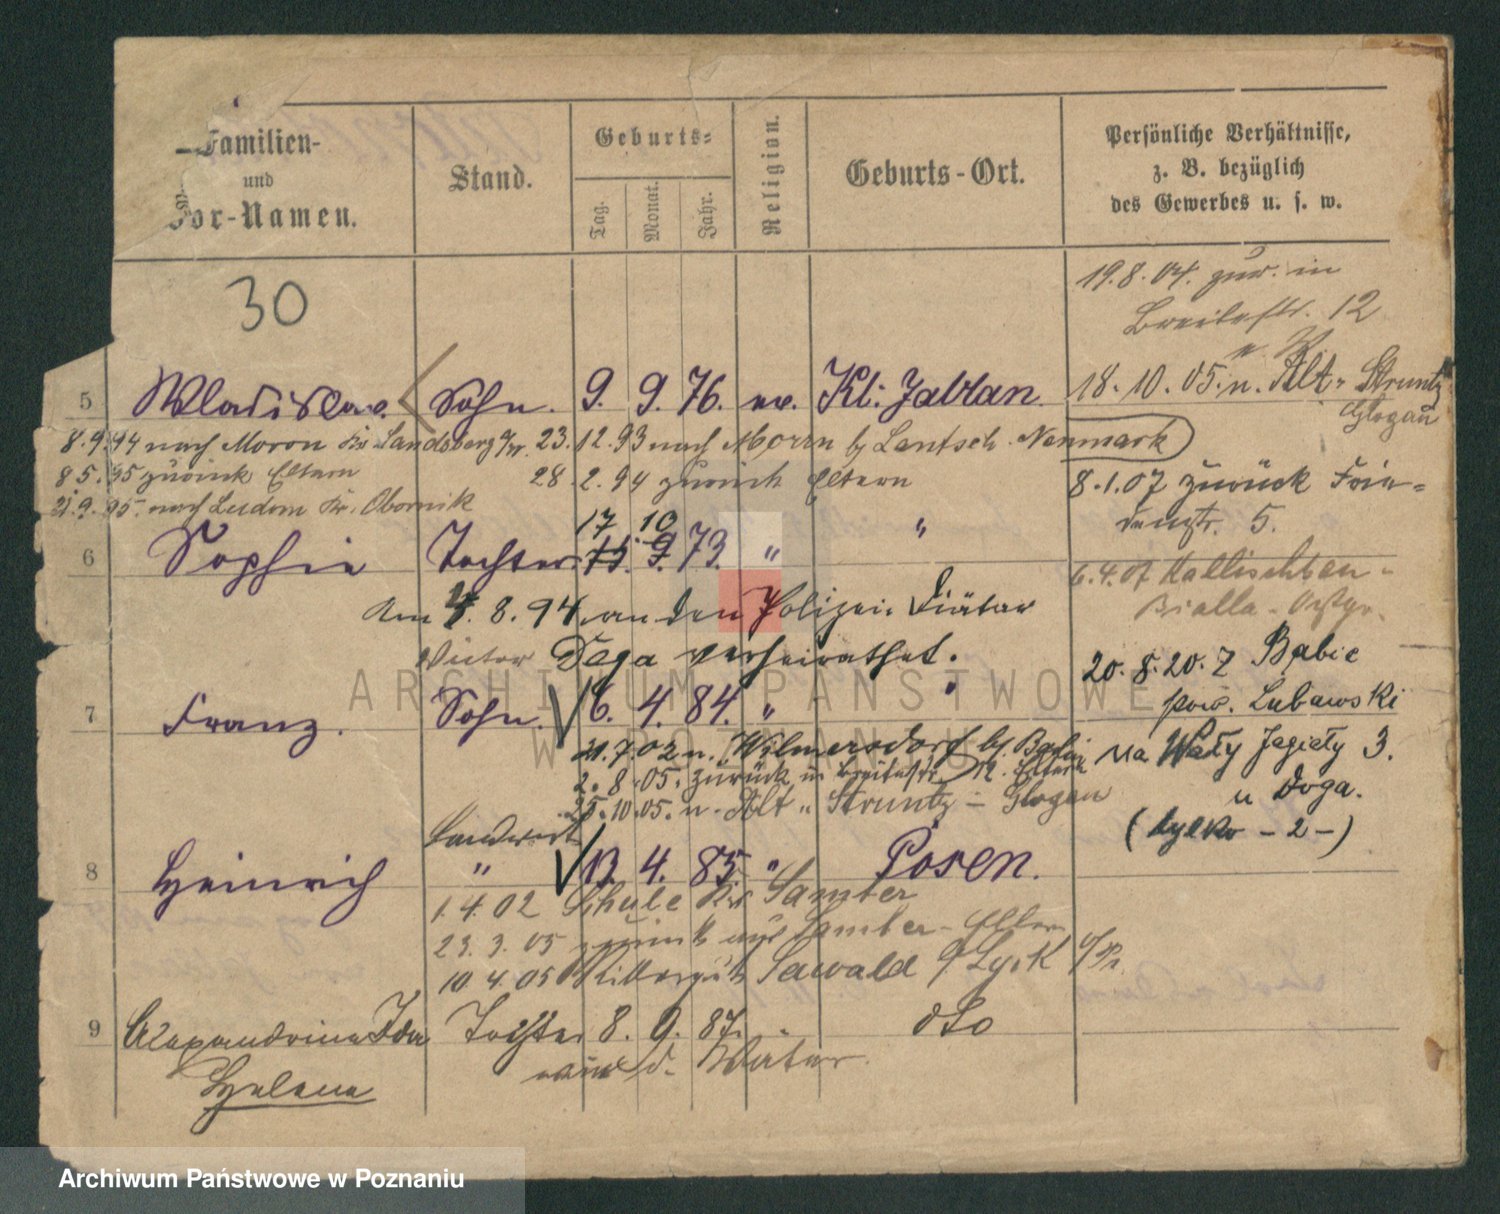 Familien-
und
Vor-Namen.
Stand.
Geburts-
Tag.
Monat.
Jahr.
Religion.
Geburts-Ort.
Persönliche Verhältnisse,
z. B. bezüglich
des Gewerbes u. s. w.
30
19.8.04. zur. in
Breitestr. 12
5 Wladislav Sohn. 9. 9. 76. ev. Kl: Jablan. 18.10.05. n. Alt-Struntz
Glogau
8.9.94 nach Morrn Kr. Landsberg a/W. 23.12.93 nach Morrn b/ Lantsch. Neumark
8.5.95 zurück Eltern 28.2.94 zurück Eltern
21.9.95. nach Ludom Kr. Obornik
8.1.07 zurück
str. 5.
17 10
6 Sophie Tochter 15. 9. 73. " "
6.4.07
Bialla - Ostpr.
Am 4.8.94 an den Polizei Diätar
Victor Doga verheirathet.
20.8.20. z Babic
pow. Lubawski
7 Franz. Sohn. 6. 4. 84. " "
na Wały Jagiełły 3.
u Doga.
(tylko - 2 -)
21.7.02 n. Wilmersdorf bf. Berlin
2.8.05. zurück in Breitestr. 12. Eltern
25.10.05. n. Alt-Struntz - Glogau
Landwirt
8 Heinrich " 13. 4. 85. " Posen.
1.4.02 Schule Kr. Samter
23.3.05 zurück aus Samter - Eltern
10.4.05 Rittergut Sawald
9 Alexandrine Ida Tochter 8. 9. 87. " dto
Helene
d. Vater
ARCHIWUM PAŃSTWOWE
W POZNANIU
Archiwum Państwowe w Poznaniu